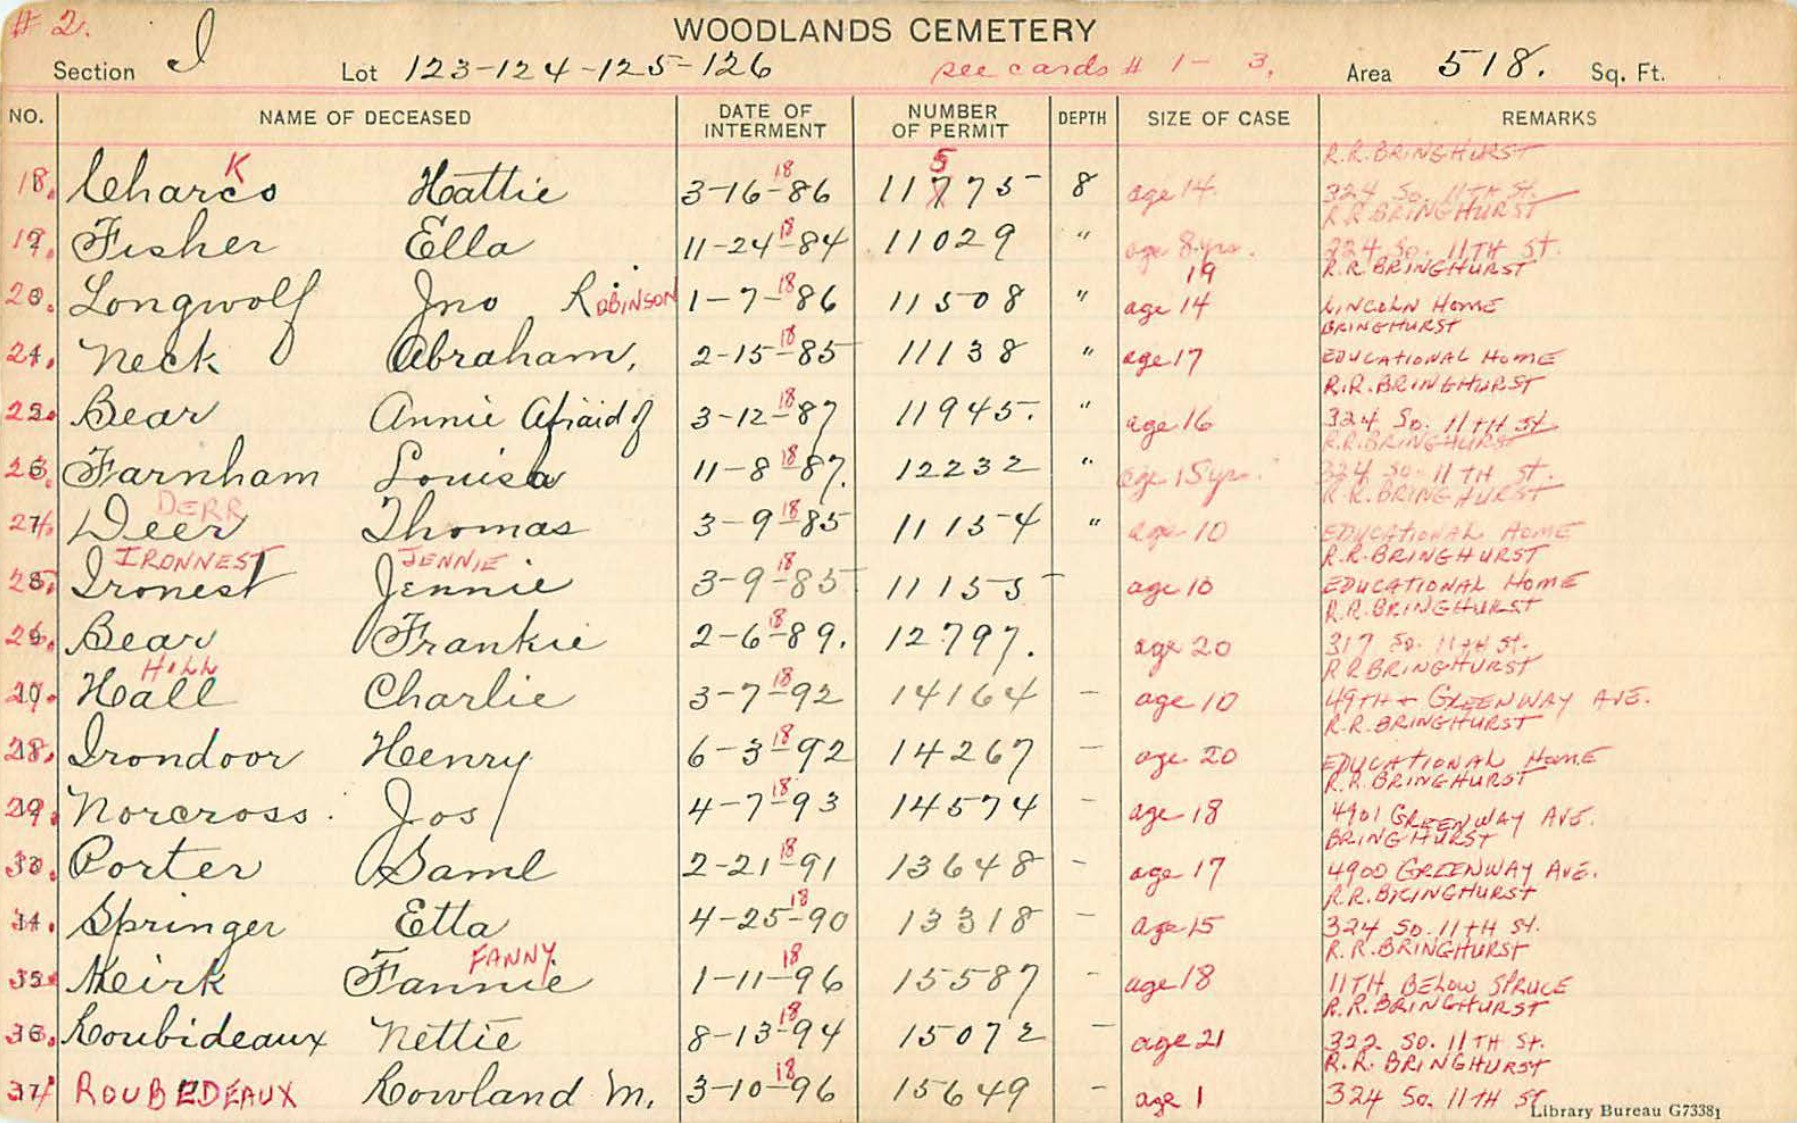 # 2.
WOODLANDS CEMETERY
Section I Lot 123-124-125-126 see cards # 1- 3. Area 518. Sq. Ft.
NO. NAME OF DECEASED DATE OF INTERMENT NUMBER OF PERMIT DEPTH SIZE OF CASE REMARKS
K 18 5 R.R. BRINGHURST
18. Charco Hattie 3-16-86 11775 8 age 14. 324 So. 11TH St.
18 R.R. BRINGHURST
19. Fisher Ella 11-24-84 11029 " age 8 yrs. 324 So. 11TH St.
18 19 R.R. BRINGHURST
20. Longwolf Jno ROBINSON 1-7-86 11508 " age 14 LINCOLN HOME
18 BRINGHURST
21. Neck Abraham, 2-15-85 11138 " age 17 EDUCATIONAL HOME
18 R.R. BRINGHURST
22. Bear Annie Afraid of 3-12-87 11945. " age 16 324 So. 11TH St.
18 R.R. BRINGHURST
23. Farnham Louisa 11-8-87. 12232 " age 15 yrs. 324 So. 11TH St.
DERR 18 R.R. BRINGHURST
24. Deer Thomas 3-9-85 11154 " age 10 EDUCATIONAL HOME
IRONNEST JENNIE 18 R.R. BRINGHURST
25. Ironest Jennie 3-9-85 11155 age 10 EDUCATIONAL HOME
18 R.R. BRINGHURST
26. Bear Frankie 2-6-89. 12797. age 20 317 So. 11TH St.
HILL 18 R R BRINGHURST
27. Hall Charlie 3-7-92 14164 - age 10 49TH + GREENWAY AVE.
18 R.R. BRINGHURST
28. Irondoor Henry 6-3-92 14267 - age 20 EDUCATIONAL HOME
18 R.R. BRINGHURST
29. Norcross. Jos 4-7-93 14574 - age 18 4901 GREENWAY AVE.
18 BRINGHURST
30. Porter Saml 2-21-91 13648 - age 17 4900 GREENWAY AVE.
18 R.R. BRINGHURST
Springer Etta 4-25-90 13318 - age 15 324 So. 11TH St.
FANNY 18 R.R. BRINGHURST
35. Meirk Fannie 1-11-96 15587 - age 18 11TH BELOW SPRUCE
18 R.R. BRINGHURST
36. Roubideaux Nettie 8-13-94 15072 - age 21 322 So. 11TH St.
18 R.R. BRINGHURST
37 ROUBEDEAUX Rowland M. 3-10-96 15649 - age 1 324 So. 11TH St
Library Bureau G73381